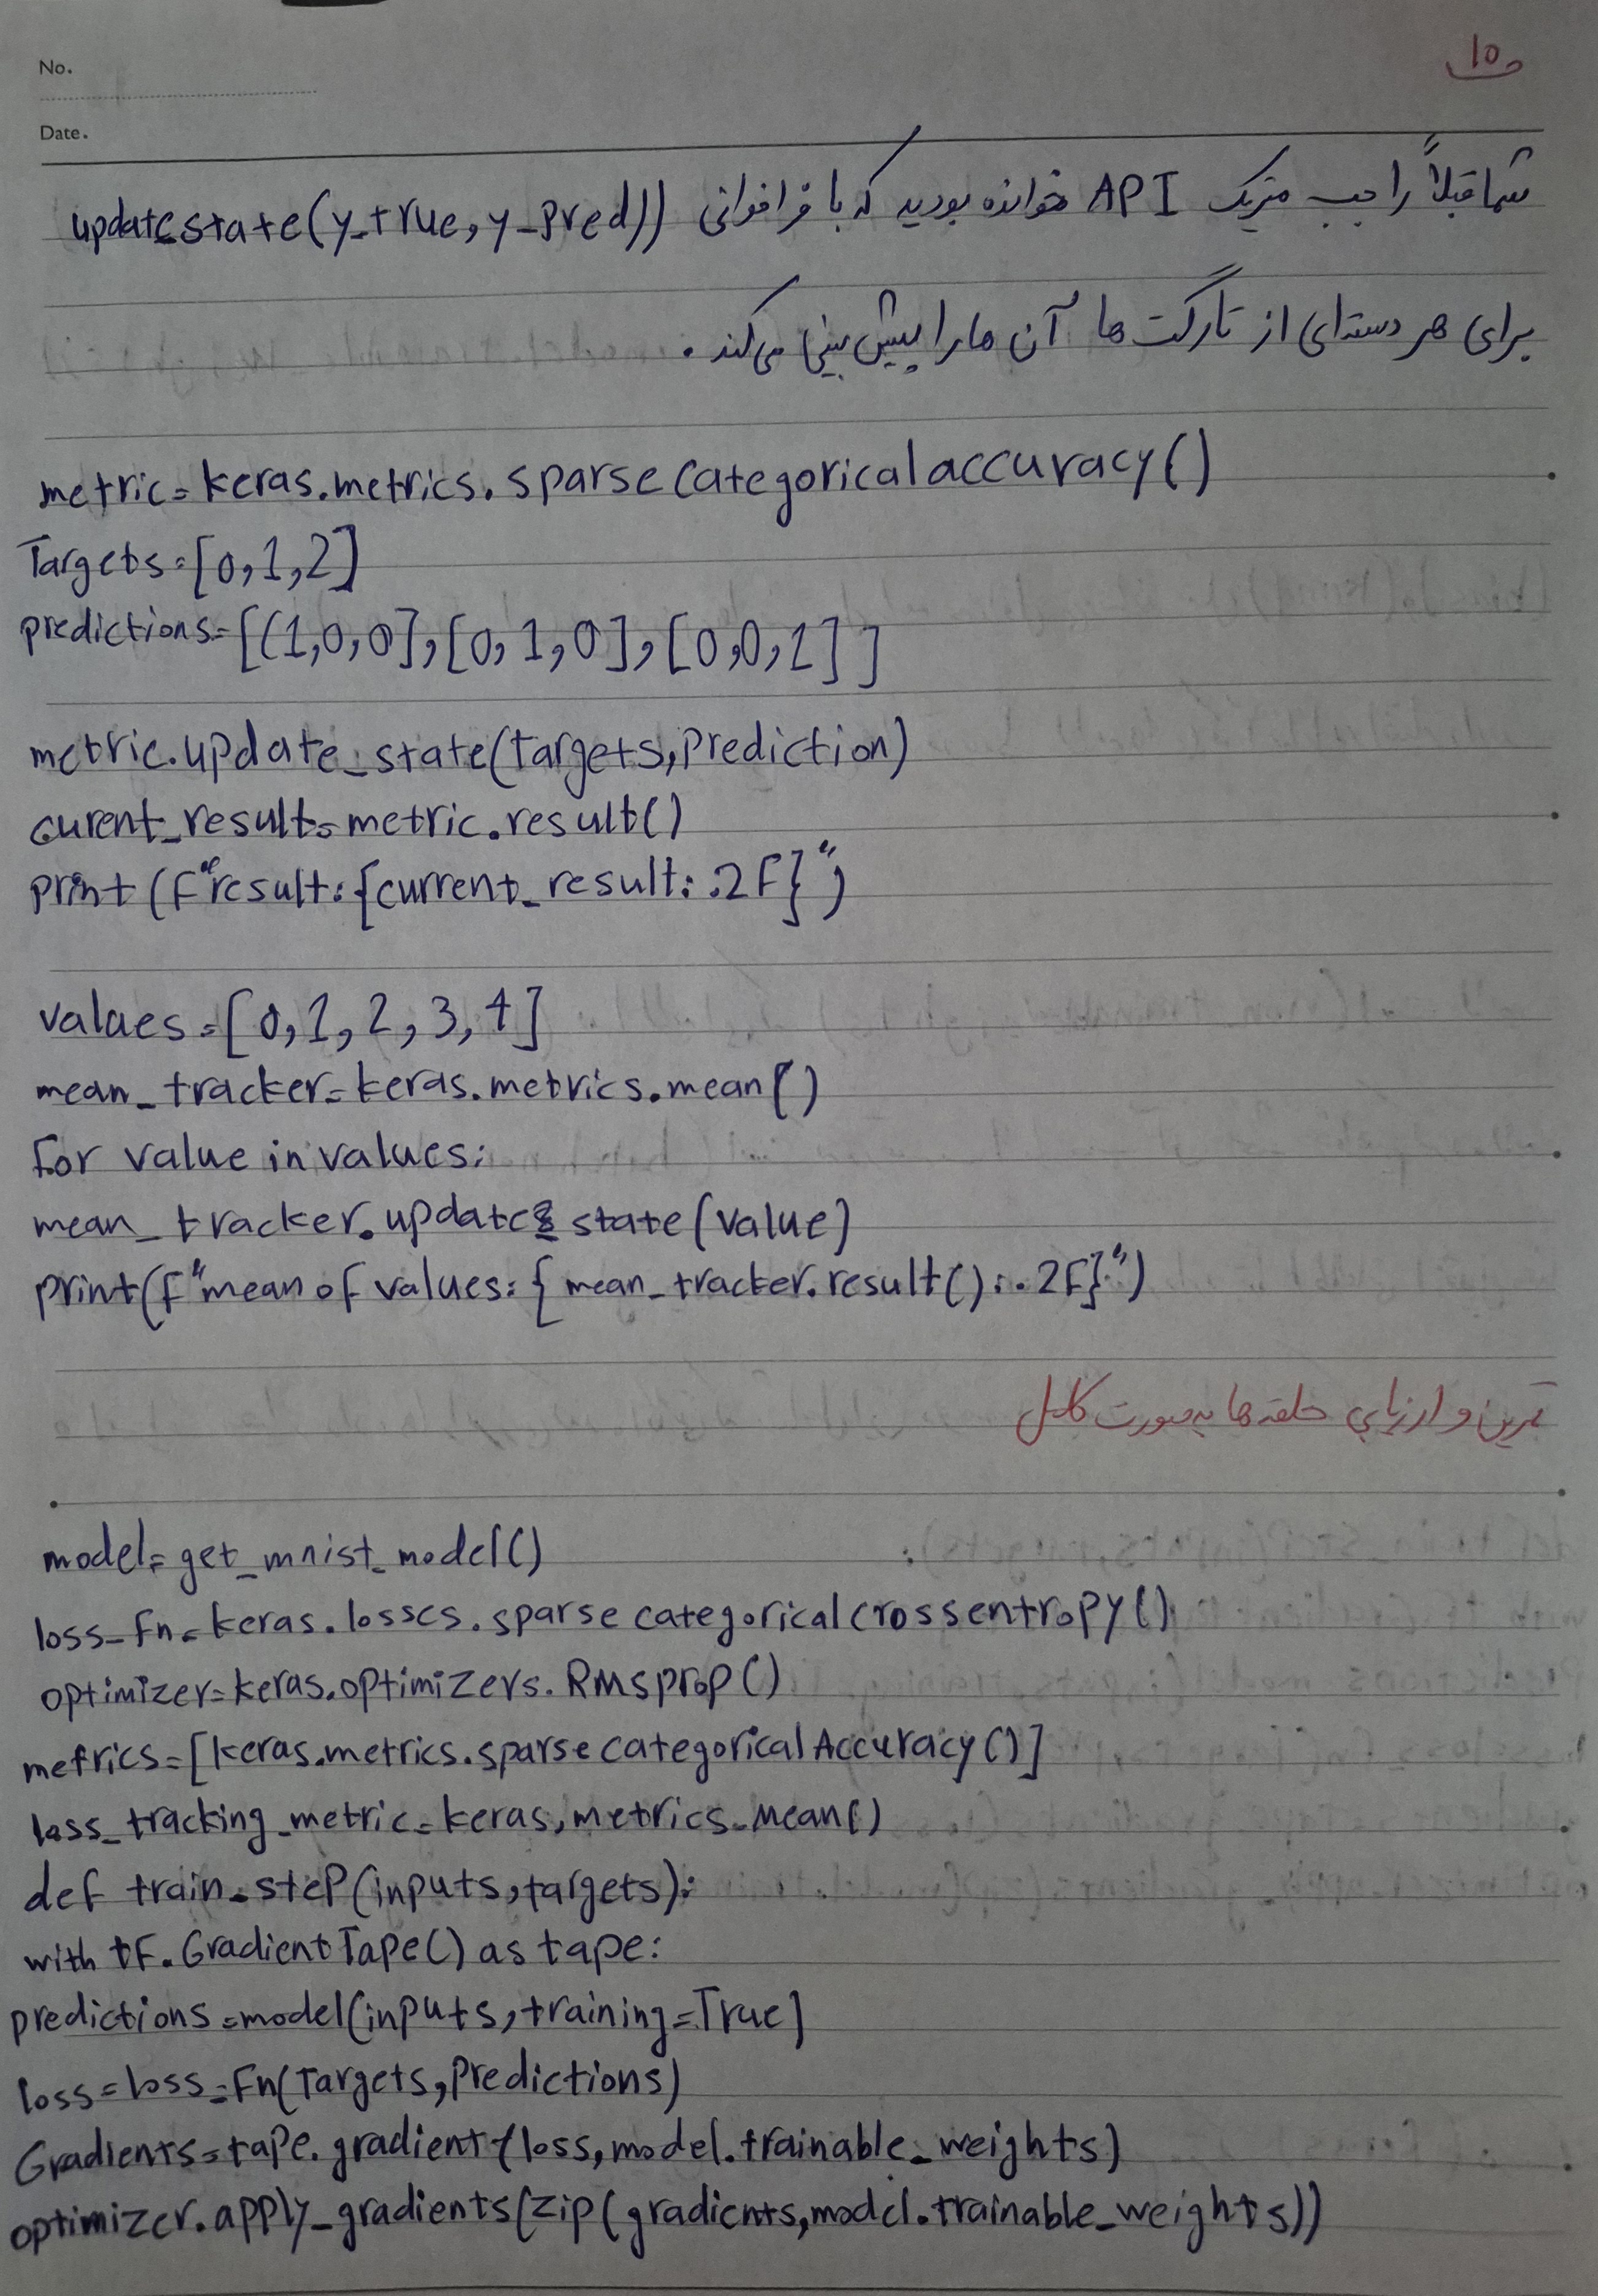 No.
ص10
Date.
شما قبلاً راجب متریک API خوانده بودید که با فراخوانی updatestate(y_true, y_pred))
برای هر دسته‌ای از تارگت ها آن هارا پیش بینی می‌کند.
metric=keras.metrics.sparsecategoricalaccuracy()
Targets=[0,1,2]
predictions=[(1,0,0],[0,1,0],[0,0,1]]
metric.update_state(targets,prediction)
curent_result=metric.result()
print(F"result:{current_result:.2F}")
values=[0,1,2,3,4]
mean_tracker=keras.metrics.mean()
For value in values:
mean_tracker.update_state(value)
print(F"mean of values:{mean_tracker.result():.2F}")
تمرین و ارزیابی حلقه ها به صورت کامل
model=get_mnist_model()
loss_Fn=keras.losses.sparsecategoricalcrossentropy()
optimizer=keras.optimizers.RMsprop()
metrics=[keras.metrics.sparsecategoricalAccuracy()]
loss_tracking_metric=keras,metrics.Mean()
def train_step(inputs,targets):
with tF.GradientTape() as tape:
predictions=model(inputs,training=True]
loss=loss_Fn(Targets,predictions)
Gradients=tape.gradient(loss,model.trainable_weights)
optimizer.apply_gradients(zip(gradients,model.trainable_weights))